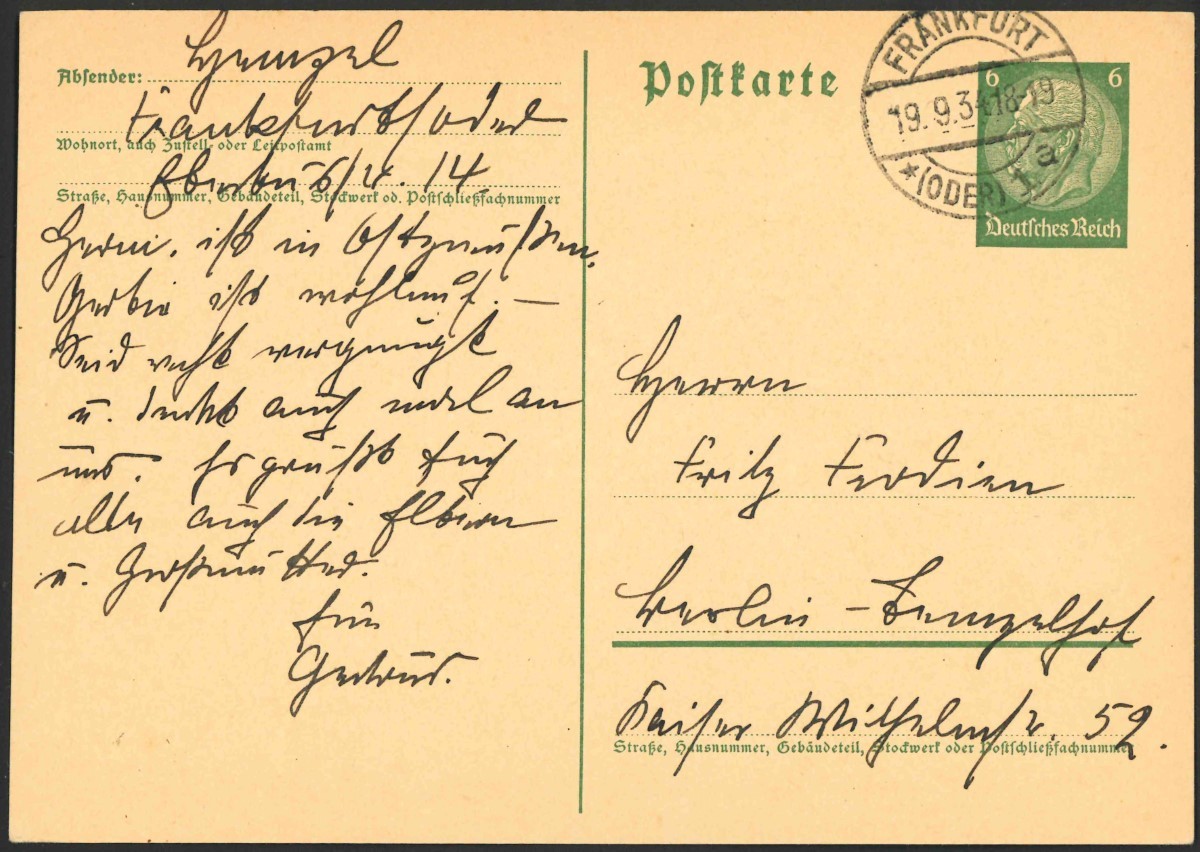 Hempel
Absender:
Frankfurt/oder
Wohnort, auch Zustell- oder Leitpostamt
14
Straße, Hausnummer, Gebäudeteil, Stockwerk od. Postschließfachnummer
ist in Ostpreußen.
ist wohlauf. —
Seid recht vergnügt
u. denkt auch mal an
uns. Es grüßt Euch
alle auch die Eltern
u. Großmutter.
Eure
Gertrud.
Postkarte
FRANKFURT
19.9.34.18-19
a
* (ODER) 1
6 6
Deutsches Reich
Herrn
Fritz Ferdien
Berlin - Tempelhof
Kaiser Wilhelmstr. 52.
Straße, Hausnummer, Gebäudeteil, Stockwerk oder Postschließfachnummer